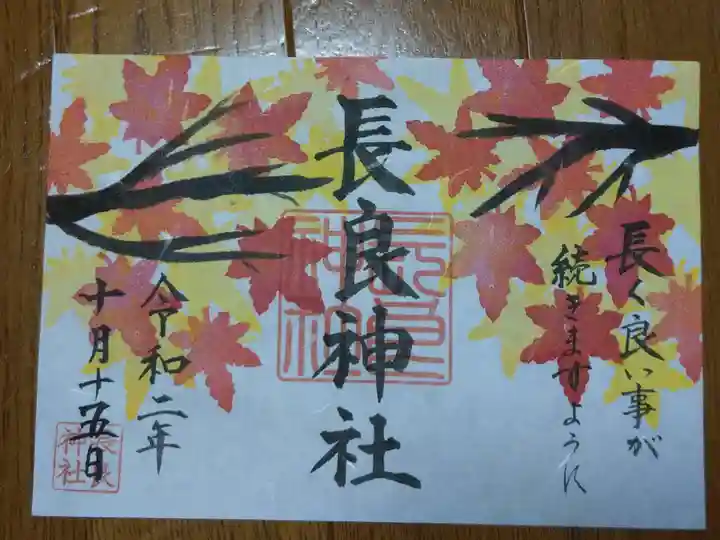 長く良い事が
続きますように
長良神社
令和二年
十月十五日
長良
神社